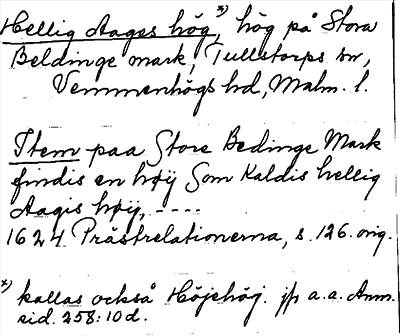 Hellig Aages hög,ˣ⁾ hög på Stora
Beldinge mark, Tullstorps sn,
Vemmenhögs hd, Malm. l.
Item paa Store Bedinge Mark
findis en høÿ Som Kaldis hellig
Aagis høÿ, ----
1624 Prästrelationerna, s. 126. orig.
x) kallas också Höjehöj. jfr a.a. Anm.
sid. 258:10d.